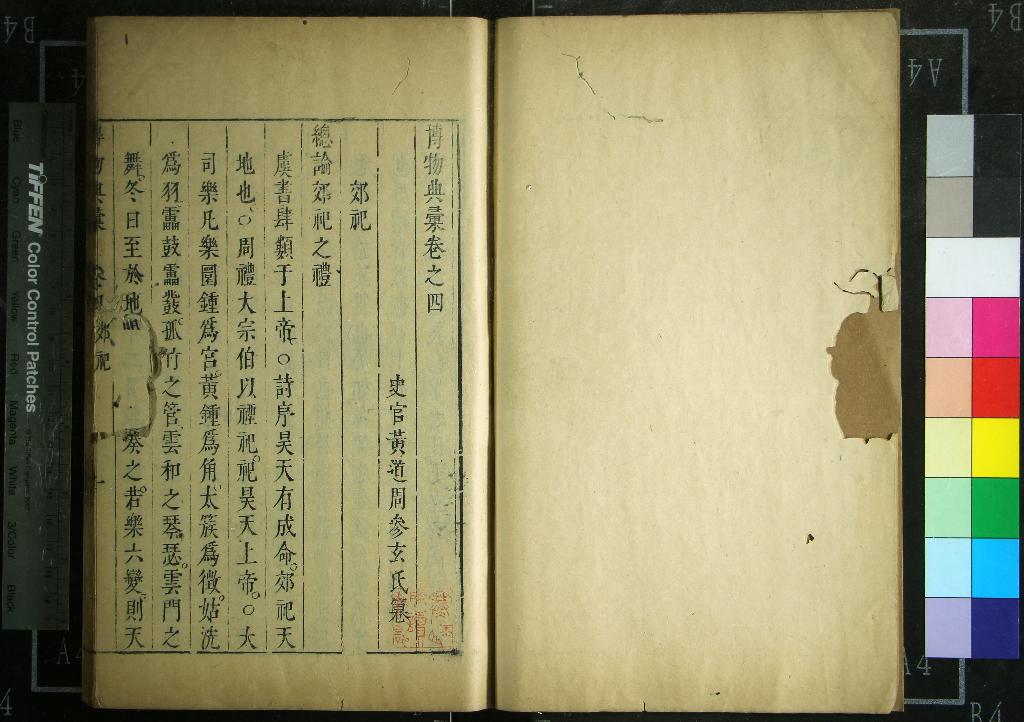 博物典彙卷之四
史官黃道周參玄氏纂
郊祀
總論郊祀之禮
虞書肆類于上帝○詩序昊天有成命郊祀天
地也○周禮大宗伯以禋祀祀昊天上帝○大
司樂凡樂圜鍾爲宮黃鍾爲角太簇爲徵姑洗
爲羽靁鼓靁鼗孤竹之管雲和之琴瑟雲門之
舞冬日至於地 奏之若樂六變則天
物典彙 郊祀
TIFFEN Color Control Patches
Blue Cyan Green Yellow Red Magenta White 3/Color Black
A4
B4